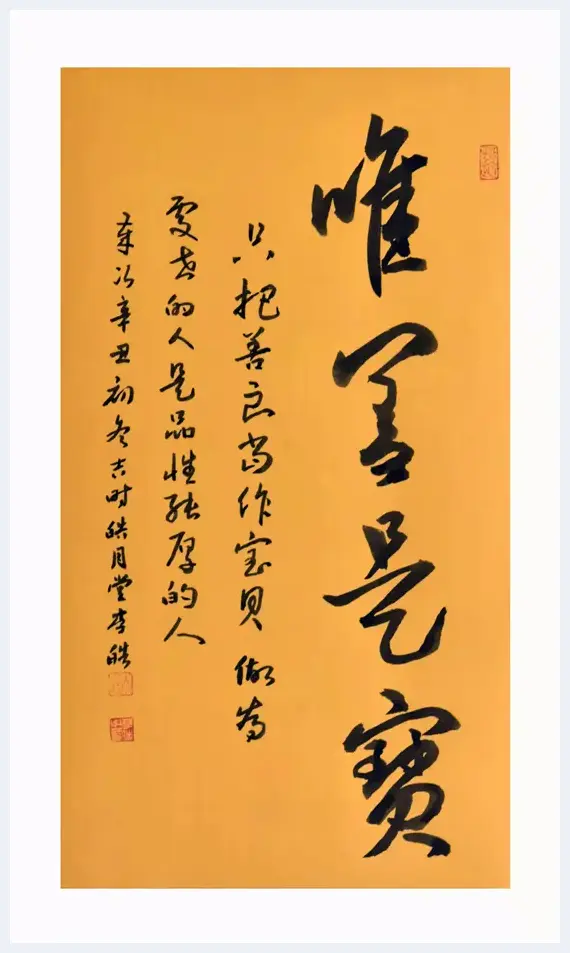 唯善是寶
只把善良当作宝貝 做為
處世的人是品性純厚的人
歲次辛丑初冬吉时皓月堂李皓